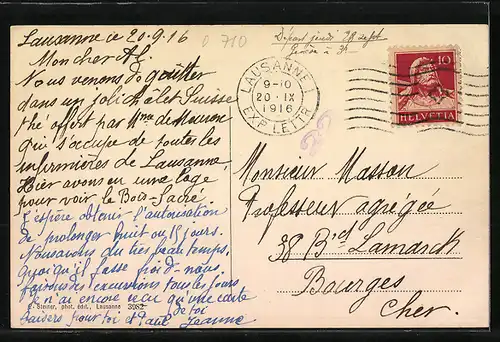 Lausanne le 20.9.16
Mon cher Al.
Nous venons de goûter
dans un joli chalet Suisse
thé offert par Mme de
qui s'occupe de toutes les
infirmières de Lausanne
Hier avons eu une loge
pour voir le Bois-Sacré.
J'espère obtenir l'autorisation
de prolonger huit ou 15 jours.
Nous avons du très beau temps,
Quoiqu'il fasse froid - nous
faisons des excursions tous les jours
Je n'ai encore reçu qu'une carte
de toi
Baisers pour toi et Paul Jeanne
E. Steiner, phot. édit., Lausanne 3982
D 710
Départ jeudi 28 sept
Genève à 3h
LAUSANNE 1
9-10
20. IX
1916
EXP. LETTR.
10
HELVETIA
Monsieur Masson
Professeur agrégé
38 Bret Lamarck
Bourges
Cher.